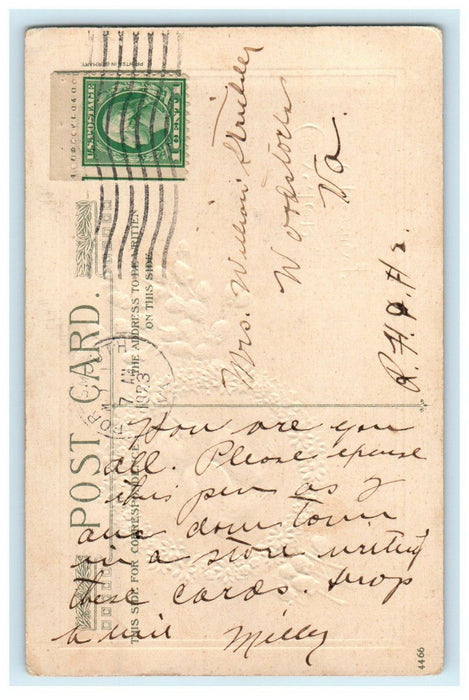 POST CARD.
THIS SIDE FOR CORRESPONDENCE
THE ADDRESS TO BE WRITTEN
ON THIS SIDE
PRINTED IN GERMANY
U.S. POSTAGE
1 CENT 1
7 AM
1923
VA.
Mrs. William
Woodstock
Va.
How are you
all. Please
this pen as I
am down town
in a store writing
these cards. Drop
a line Milly
4466